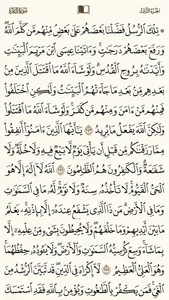 ۞ تِلْكَ ٱلرُّسُلُ فَضَّلْنَا بَعْضَهُمْ عَلَىٰ بَعْضٍ مِّنْهُم مَّن كَلَّمَ ٱللَّهُ
وَرَفَعَ بَعْضَهُمْ دَرَجَٰتٍ وَءَاتَيْنَا عِيسَى ٱبْنَ مَرْيَمَ ٱلْبَيِّنَٰتِ
وَأَيَّدْنَٰهُ بِرُوحِ ٱلْقُدُسِ وَلَوْ شَآءَ ٱللَّهُ مَا ٱقْتَتَلَ ٱلَّذِينَ
مِنۢ بَعْدِهِم مِّنۢ بَعْدِ مَا جَآءَتْهُمُ ٱلْبَيِّنَٰتُ وَلَٰكِنِ ٱخْتَلَفُوا۟
فَمِنْهُم مَّنْ ءَامَنَ وَمِنْهُم مَّن كَفَرَ وَلَوْ شَآءَ ٱللَّهُ مَا ٱقْتَتَلُوا۟
وَلَٰكِنَّ ٱللَّهَ يَفْعَلُ مَا يُرِيدُ ٢٥٣ يَٰٓأَيُّهَا ٱلَّذِينَ ءَامَنُوٓا۟ أَنفِقُوا۟
مِمَّا رَزَقْنَٰكُم مِّن قَبْلِ أَن يَأْتِىَ يَوْمٌ لَّا بَيْعٌ فِيهِ وَلَا خُلَّةٌ وَلَا
شَفَٰعَةٌ وَٱلْكَٰفِرُونَ هُمُ ٱلظَّٰلِمُونَ ٢٥٤ ٱللَّهُ لَآ إِلَٰهَ إِلَّا هُوَ
ٱلْحَىُّ ٱلْقَيُّومُ لَا تَأْخُذُهُۥ سِنَةٌ وَلَا نَوْمٌ لَّهُۥ مَا فِى ٱلسَّمَٰوَٰتِ
وَمَا فِى ٱلْأَرْضِ مَن ذَا ٱلَّذِى يَشْفَعُ عِندَهُۥٓ إِلَّا بِإِذْنِهِۦ يَعْلَمُ
مَا بَيْنَ أَيْدِيهِمْ وَمَا خَلْفَهُمْ وَلَا يُحِيطُونَ بِشَىْءٍ مِّنْ عِلْمِهِۦٓ إِلَّا
بِمَا شَآءَ وَسِعَ كُرْسِيُّهُ ٱلسَّمَٰوَٰتِ وَٱلْأَرْضَ وَلَا يَـُٔودُهُۥ حِفْظُهُمَا
وَهُوَ ٱلْعَلِىُّ ٱلْعَظِيمُ ٢٥٥ لَآ إِكْرَاهَ فِى ٱلدِّينِ قَد تَّبَيَّنَ ٱلرُّشْدُ مِنَ
ٱلْغَىِّ فَمَن يَكْفُرْ بِٱلطَّٰغُوتِ وَيُؤْمِنۢ بِٱللَّهِ فَقَدِ ٱسْتَمْسَكَ